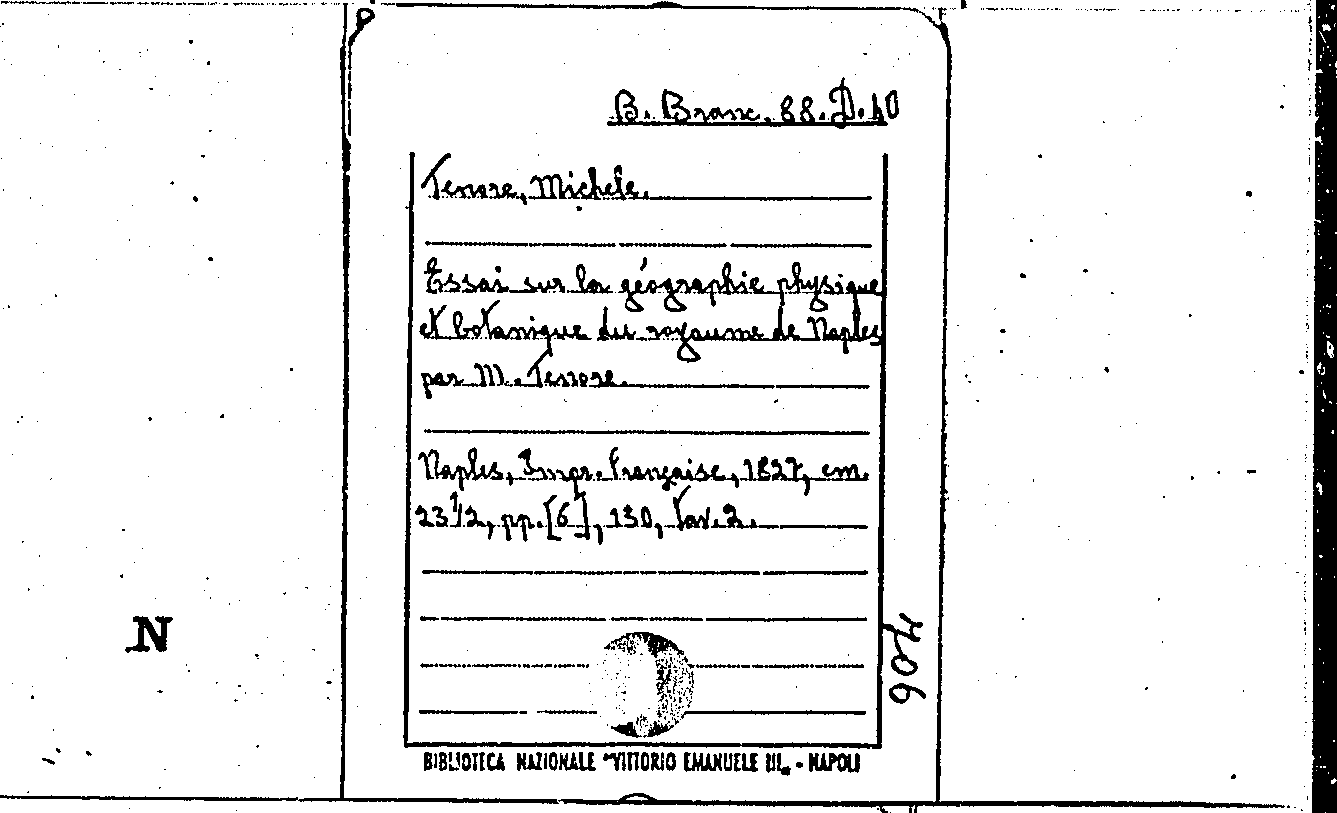 B. Branc. 88. D. 40
Tenore, Michele.
Essai sur la géographie physique
et botanique du royaume de Naples
par M. Tenore.
Naples, Impr. Française, 1827, cm.
23 1/2, pp. [6], 130, Tav. 2.
406
N
BIBLIOTECA NAZIONALE "VITTORIO EMANUELE III„ - NAPOLI